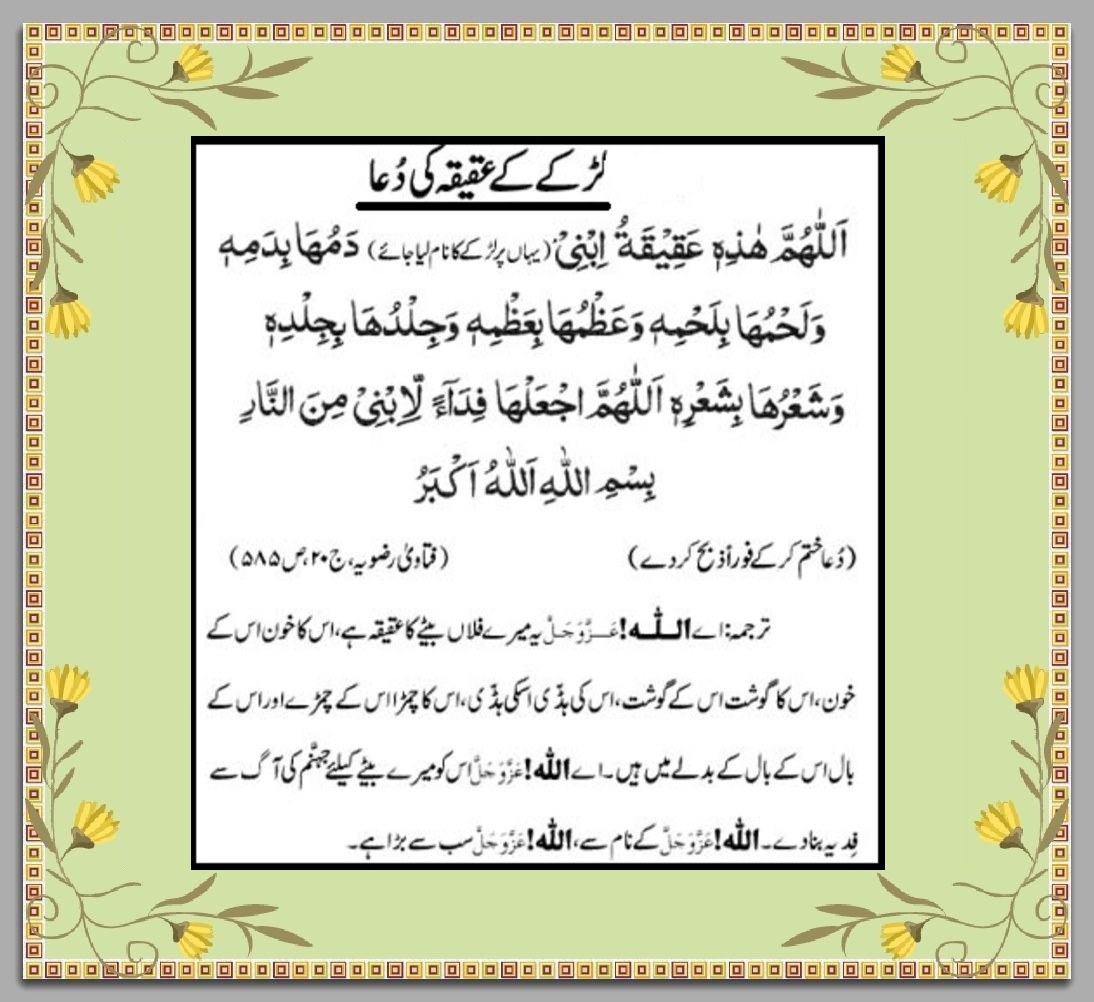 لڑکے کے عقیقہ کی دُعا
اَللّٰهُمَّ هٰذِهٖ عَقِيْقَةُ اِبْنِىْ (یہاں پر لڑکے کا نام لیا جائے) دَمُهَا بِدَمِهٖ
وَلَحْمُهَا بِلَحْمِهٖ وَعَظْمُهَا بِعَظْمِهٖ وَجِلْدُهَا بِجِلْدِهٖ
وَشَعْرُهَا بِشَعْرِهٖ اَللّٰهُمَّ اجْعَلْهَا فِدَآءً لِّاِبْنِىْ مِنَ النَّارِ
بِسْمِ اللّٰهِ اَللّٰهُ اَكْبَرُ
(دُعا ختم کر کے فوراً ذبح کر دے) (فتاویٰ رضویہ، ج ۲۰، ص ۵۸۵)
ترجمہ: اے اللّٰہ! عَزَّوَجَلَّ یہ میرے فلاں بیٹے کا عقیقہ ہے، اس کا خون اس کے
خون، اس کا گوشت اس کے گوشت، اس کی ہڈّی اسکی ہڈّی، اس کا چمڑا اس کے چمڑے اور اس کے
بال اس کے بال کے بدلے میں ہیں۔ اے اللّٰہ! عَزَّوَجَلَّ اس کو میرے بیٹے کیلئے جہنّم کی آگ سے
فِدیہ بنا دے۔ اللّٰہ! عَزَّوَجَلَّ کے نام سے، اللّٰہ! عَزَّوَجَلَّ سب سے بڑا ہے۔